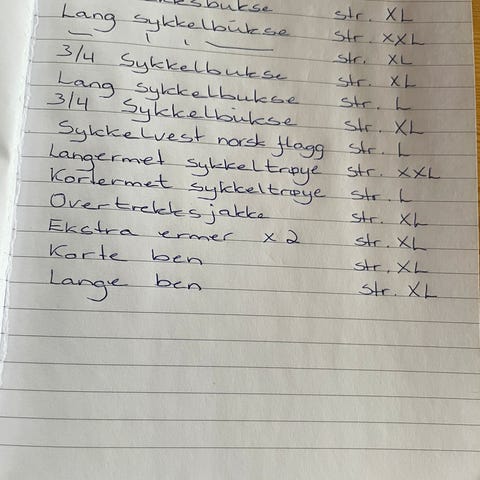 str. XL
Lang sykkelbukse str. XXL
— " — str. XL
3/4 Sykkelbukse str. XL
Lang sykkelbukse str. L
3/4 Sykkelbukse str. XL
Sykkelvest norsk flagg str. L
Langermet sykkeltrøye str. XXL
Kortermet sykkeltrøye str. L
Overtrekksjakke str. XL
Ekstra ermer x 2 str. XL
Korte ben str. XL
Lange ben str. XL